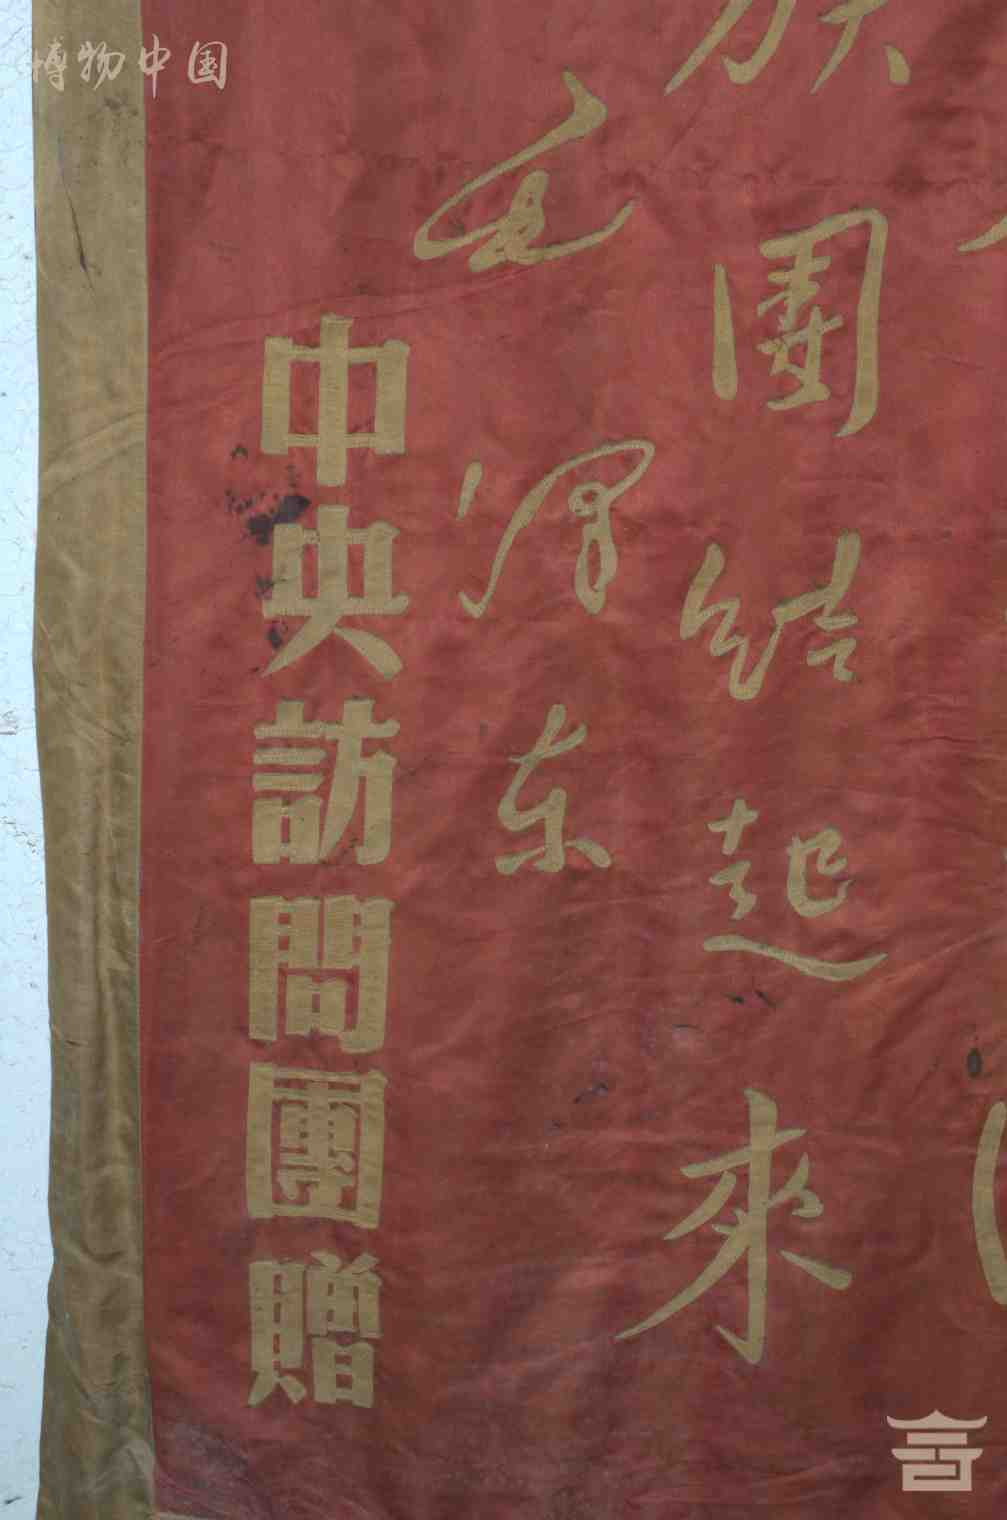 博物中国
族團結起來
毛澤东
中央訪問團贈